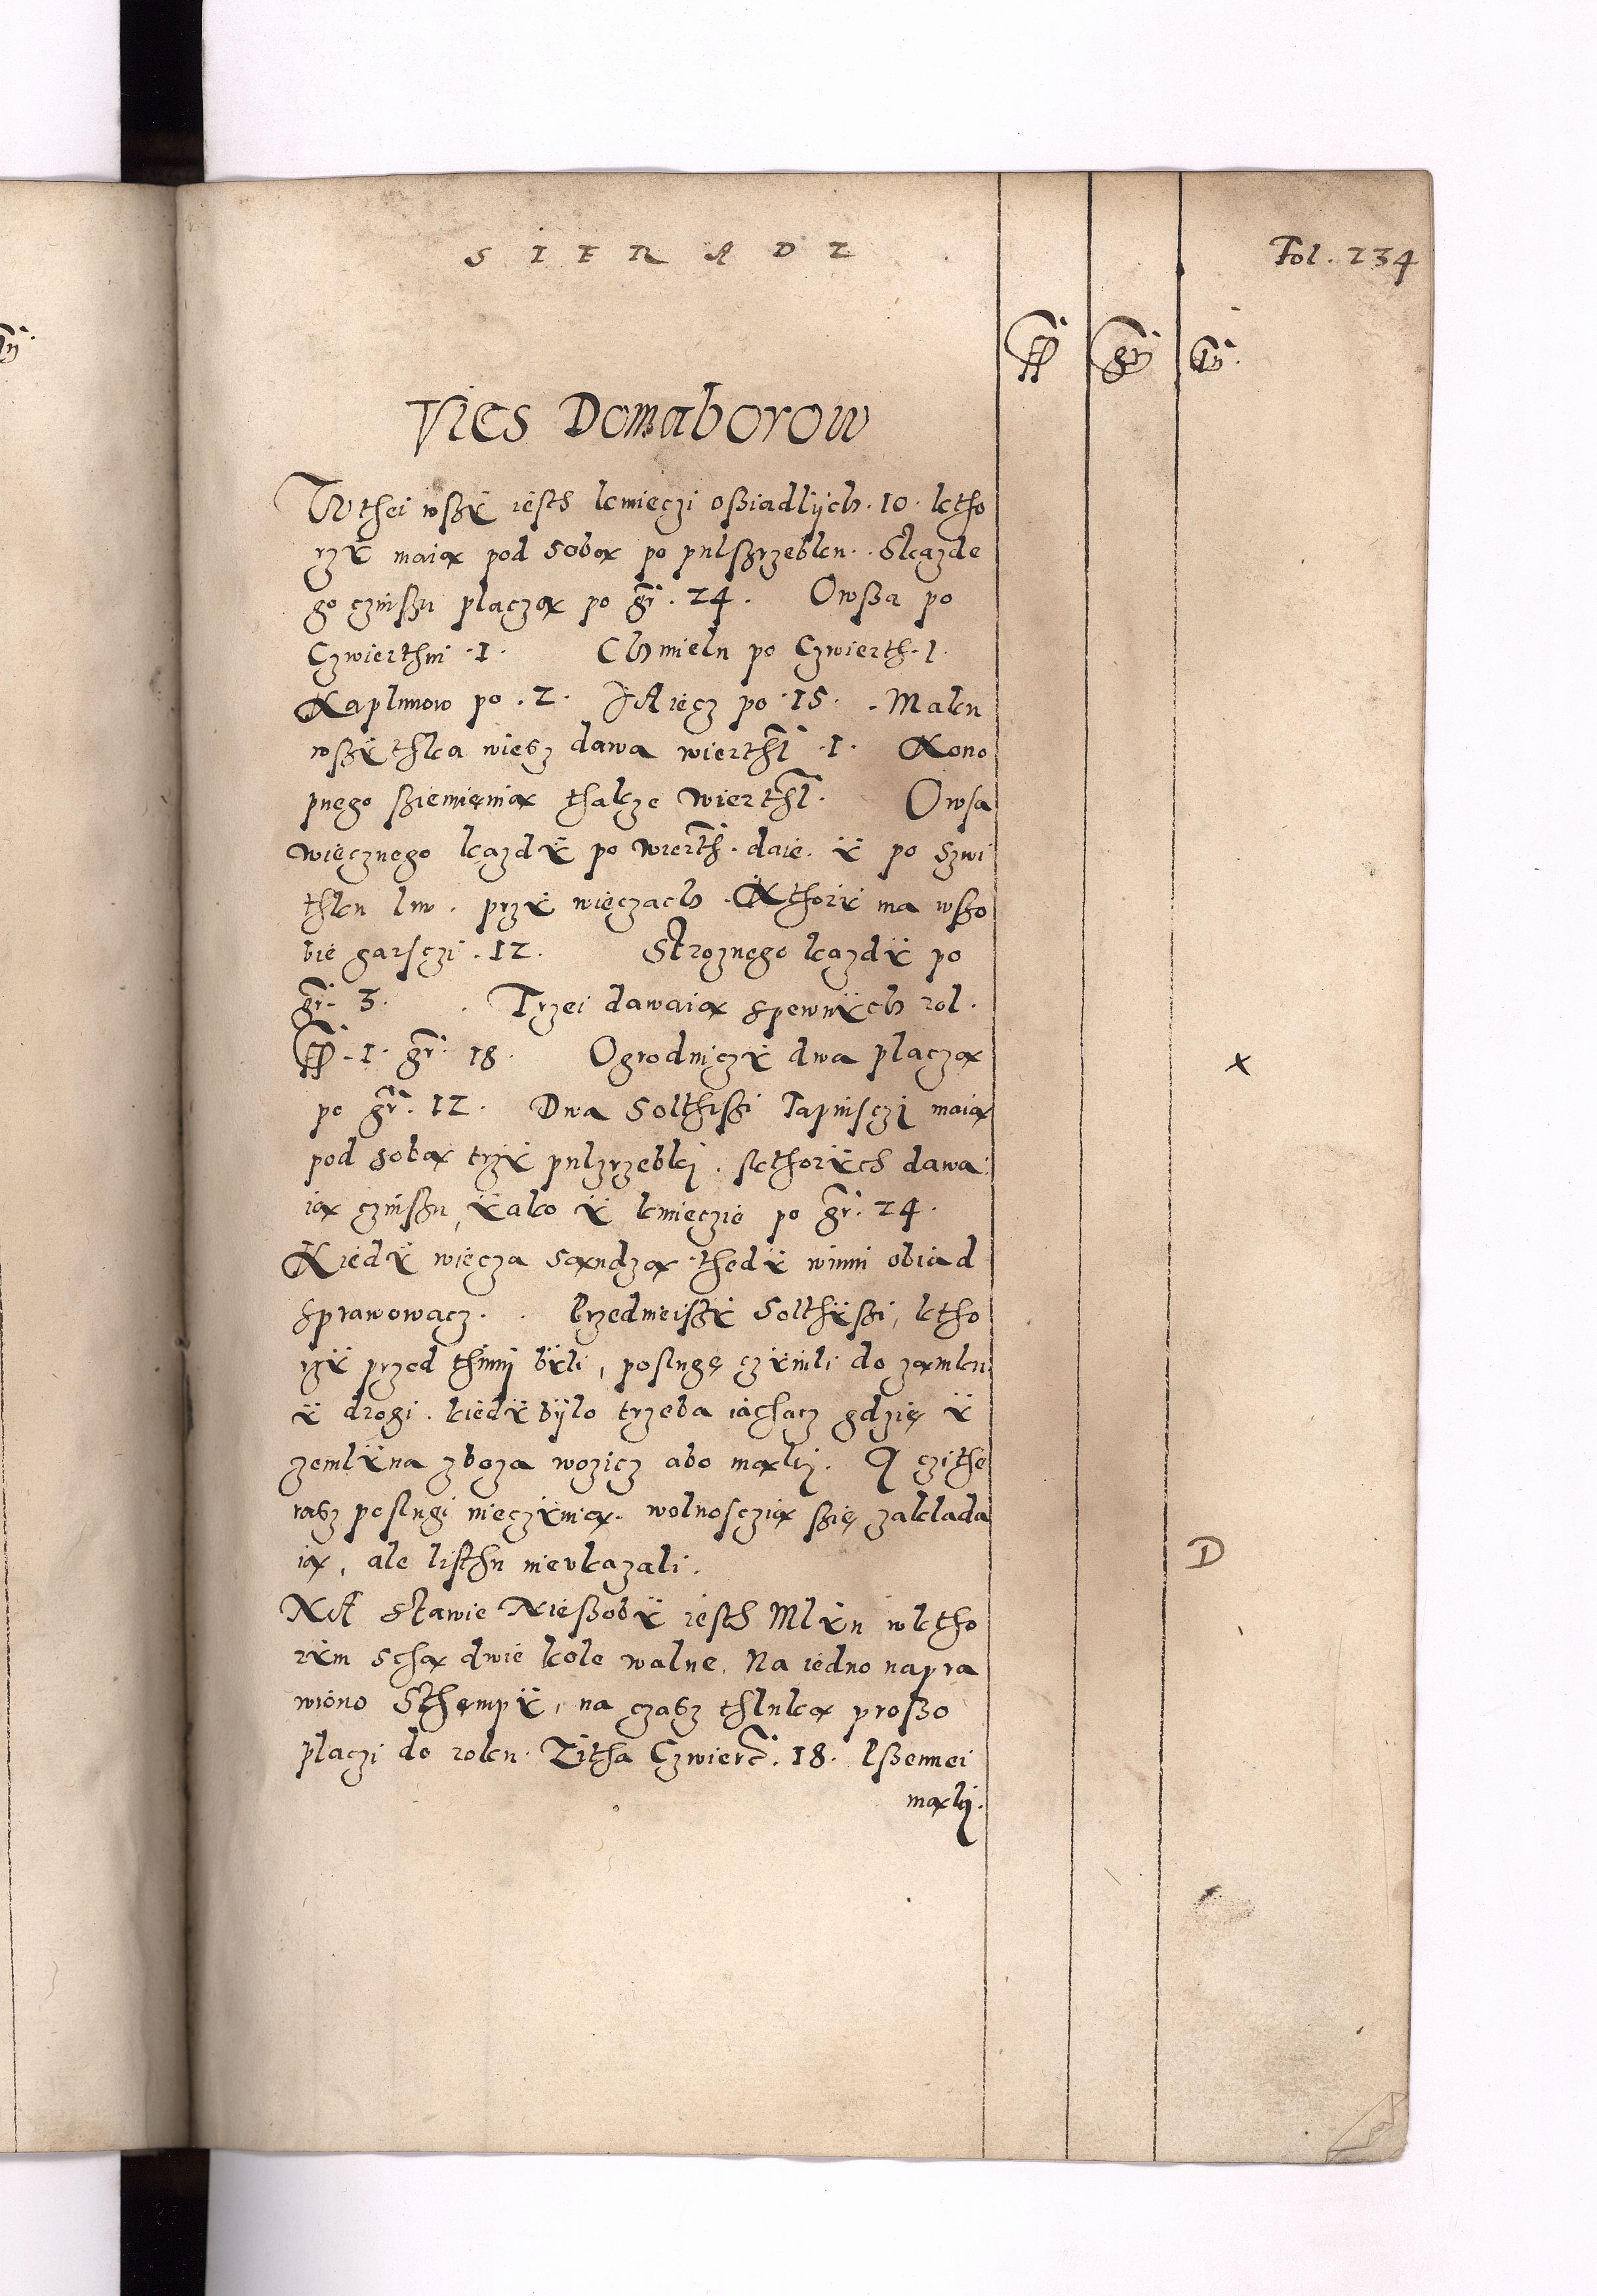 SIERADZ
Fol. 234
ff gr d
Vies Domaborow
W thei wßÿ iesth kmieczi oßiadlÿch .10. ktho
rzÿ maią pod sobą po pulßrzebku. Skazde
go czinßu placzą po gr. 24. Owßa po
Czwierthni .1. Chmielu po Czwierth. 1.
Kaplunow po .2. JAiecz po .15. Maku
wßÿthka wiesz dawa wierthl .1. Kono
pnego ßiemięnia thakze wierthl. Owsa
wiecznego kazdÿ po wierth. daie. ÿ po szwi
thku lnu. przÿ wieczach. Kthorÿ ma wßo
bie garsczi .12. Stroznego kazdÿ po
gr. 3. Trzei dawaią spewnÿch rol.
ff .1. gr. 18. Ogrodniczÿ dwa placzą
po gr. 12. Dwa Solthißi Tapinsczj maią
pod sobą trzÿ pulzrzebkj. skthorÿch dawa
ią czinßu, ÿako ÿ kmieczie po gr. 24.
Kiedÿ wiecza sąndzą thedÿ winni obiad
sprawowacz. Przedmeißÿ Solthÿßi, ktho
rzÿ przed thimj bÿli, poslugę czÿnili do zamku
ÿ drogi. kiedÿ bÿlo trzeba iachacz gdzie ÿ
zemlÿna zboza wozicz abo mąkj. A czi the
rasz poslugi nieczÿnią. wolnosczią ßię zaklada
ią, ale listhu nieukazali.
NA stawie Nießobÿ iesth Mlÿn wktho
rÿm schą dwie kole walne. Na iedno napra
wiono Sthempÿ, na czasz thluką proßo
placzi do roku. Zitha Czwierc. 18. Pßennei
mąkj.
X
D